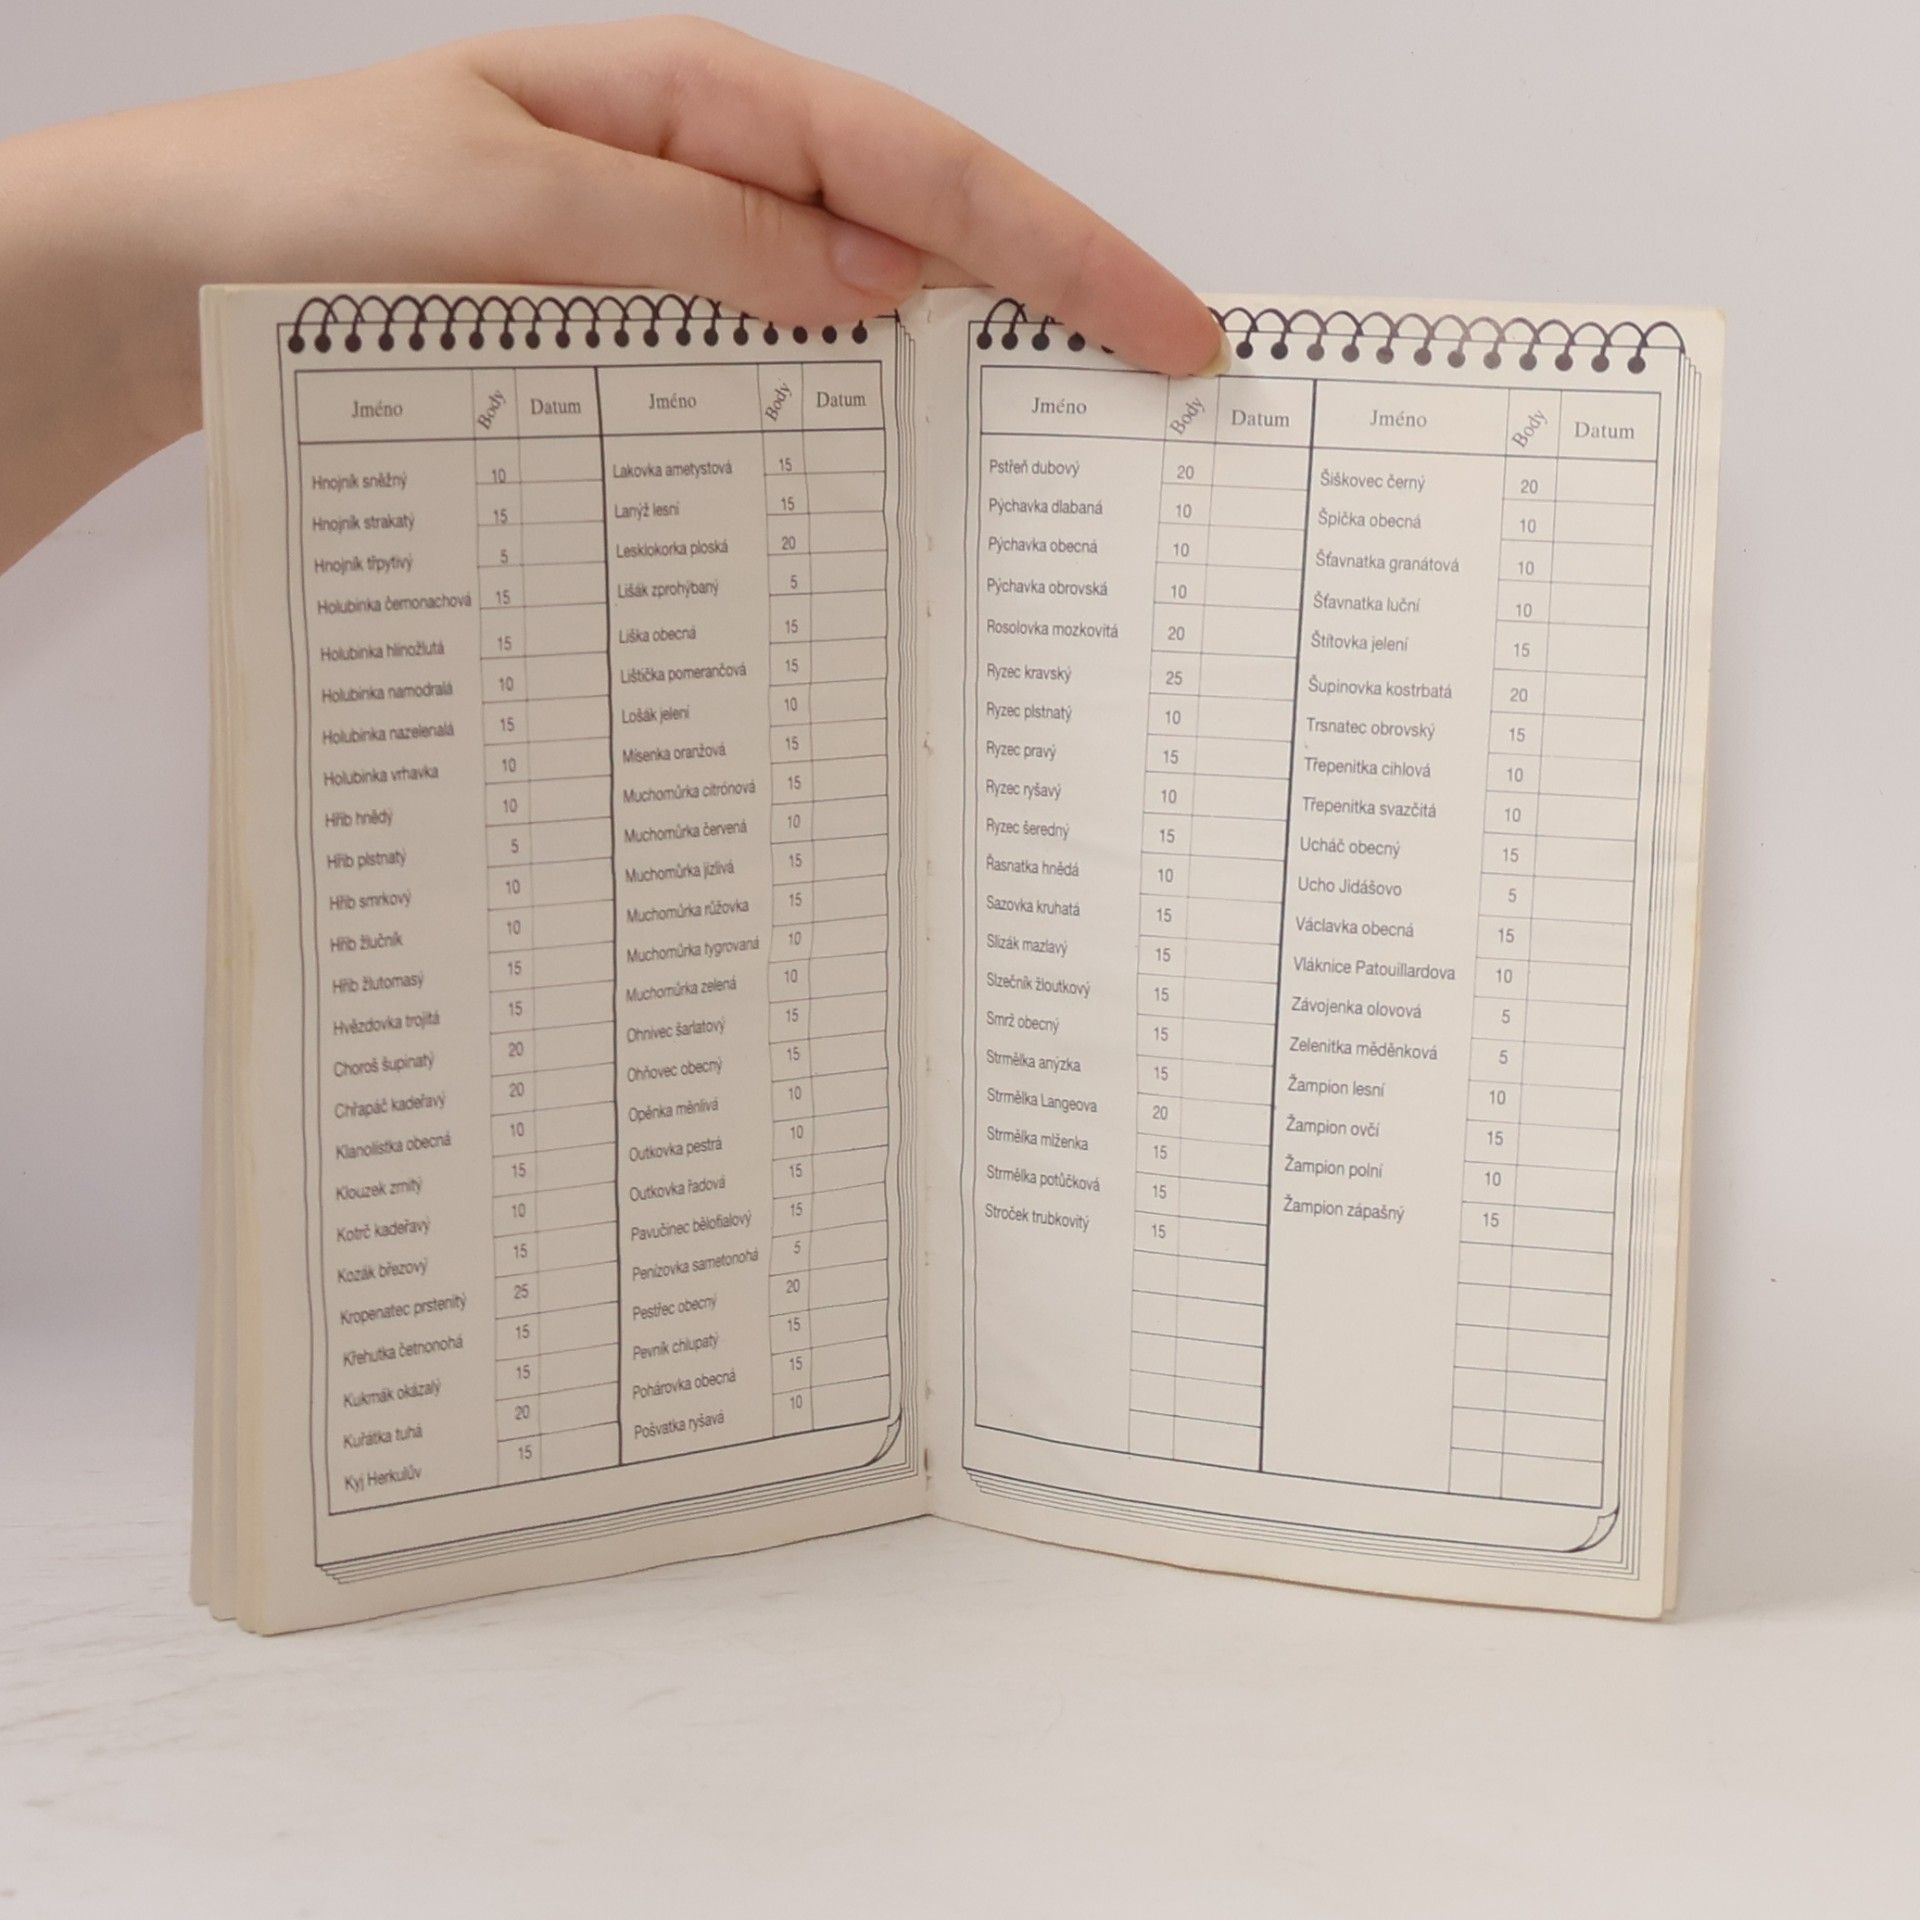 Jméno Body Datum
Hnojník sněžný 10
Hnojník strakatý 15
Hnojník třpytivý 5
Holubinka černonachová 15
Holubinka hlínožlutá 15
Holubinka namodralá 10
Holubinka nazelenalá 15
Holubinka vrhavka 10
Hřib hnědý 10
Hřib plstnatý 5
Hřib smrkový 10
Hřib žlučník 10
Hřib žlutomasý 15
Hvězdovka trojitá 15
Choroš šupinatý 20
Chřapáč kadeřavý 20
Klanolístka obecná 10
Klouzek zrnitý 15
Kotrč kadeřavý 10
Kozák březový 15
Kropenatec prstenitý 25
Křehutka četnonohá 15
Kukmák okázalý 15
Kuřátka tuhá 20
Kyj Herkulův 15
Jméno Body Datum
Lakovka ametystová 15
Lanýž lesní 15
Lesklokorka ploská 20
Lišák zprohýbaný 5
Liška obecná 15
Lištička pomerančová 15
Lošák jelení 10
Mísenka oranžová 15
Muchomůrka citrónová 15
Muchomůrka červená 10
Muchomůrka jízlivá 15
Muchomůrka růžovka 15
Muchomůrka tygrovaná 10
Muchomůrka zelená 10
Ohnivec šarlatový 15
Ohňovec obecný 15
Opěnka měnlivá 10
Outkovka pestrá 10
Outkovka řadová 15
Pavučinec bělofialový 15
Penízovka sametonohá 5
Pestřec obecný 20
Pevník chlupatý 15
Pohárovka obecná 15
Pošvatka ryšavá 10
Jméno Body Datum
Pstřeň dubový 20
Pýchavka dlabaná 10
Pýchavka obecná 10
Pýchavka obrovská 10
Rosolovka mozkovitá 20
Ryzec kravský 25
Ryzec plstnatý 10
Ryzec pravý 15
Ryzec ryšavý 10
Ryzec šeredný 15
Řasnatka hnědá 10
Sazovka kruhatá 15
Slizák mazlavý 15
Slzečník žloutkový 15
Smrž obecný 15
Strmělka anýzka 15
Strmělka Langeova 20
Strmělka mlženka 15
Strmělka potůčková 15
Stroček trubkovitý 15
Jméno Body Datum
Šiškovec černý 20
Špička obecná 10
Šťavnatka granátová 10
Šťavnatka luční 10
Štítovka jelení 15
Šupinovka kostrbatá 20
Trsnatec obrovský 15
Třepenitka cihlová 10
Třepenitka svazčitá 10
Ucháč obecný 15
Ucho Jidášovo 5
Václavka obecná 15
Vláknice Patouillardova 10
Závojenka olovová 5
Zelenitka měděnková 5
Žampion lesní 10
Žampion ovčí 15
Žampion polní 10
Žampion zápašný 15